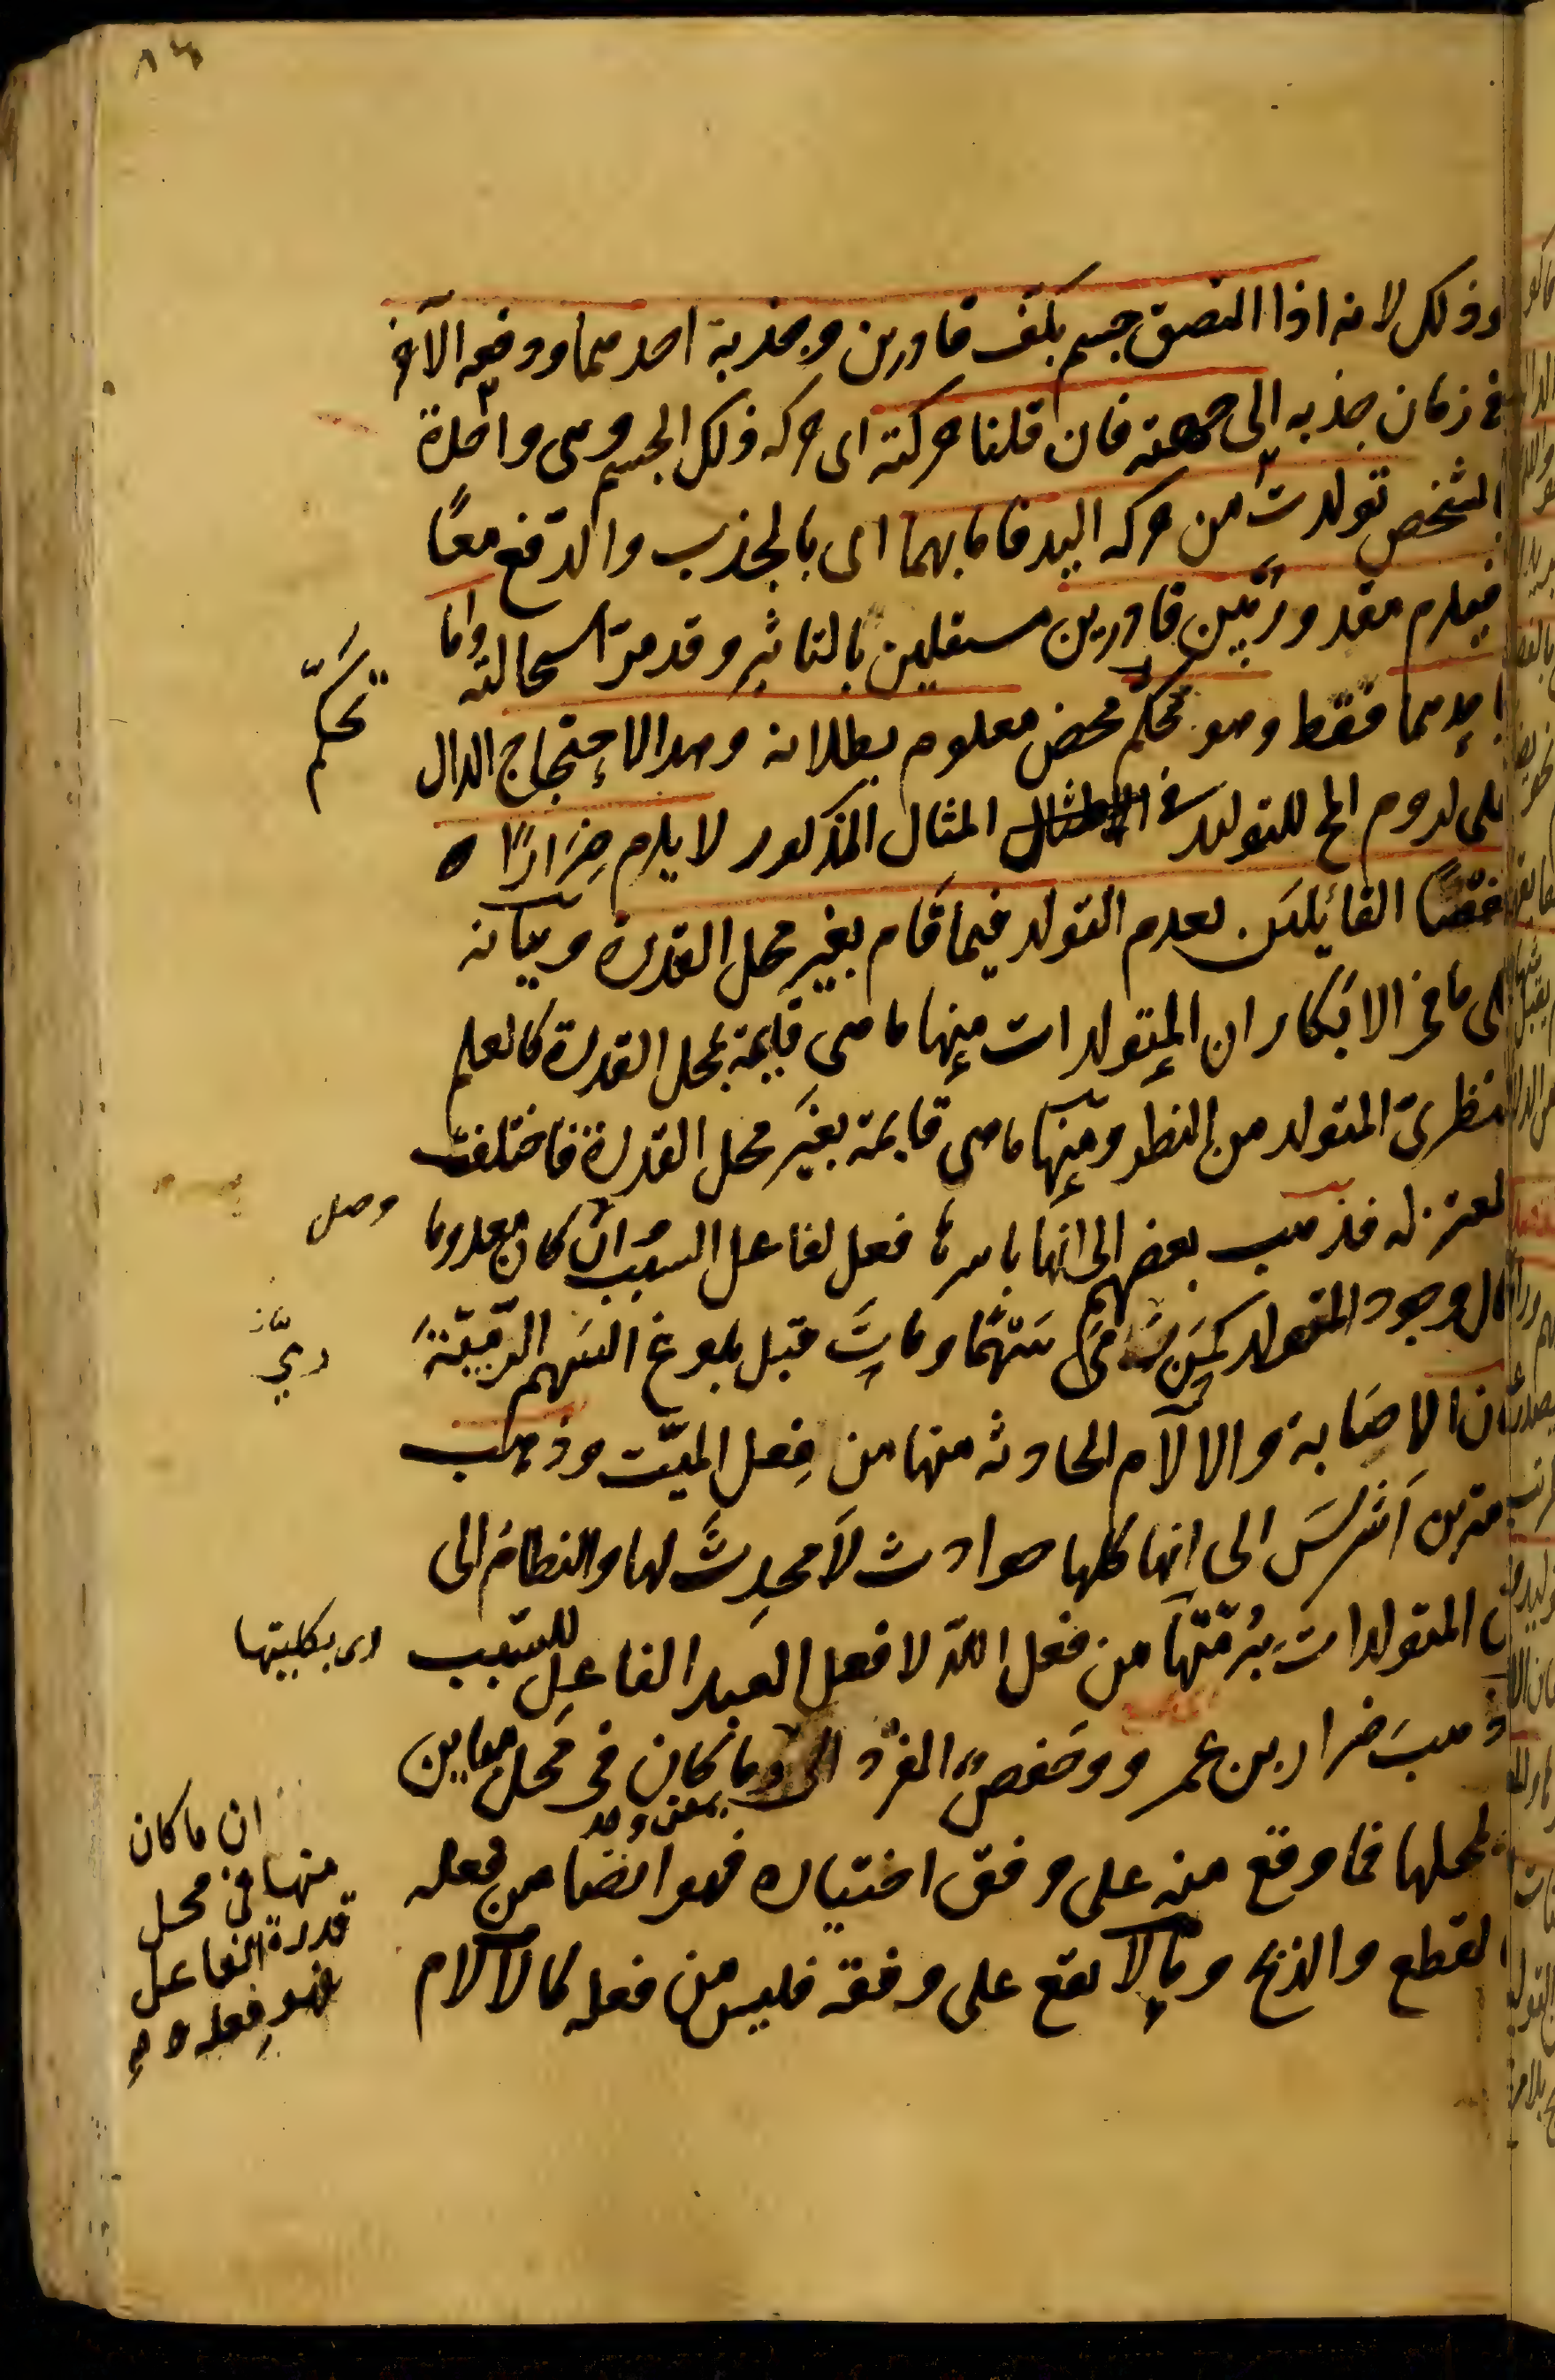 ٨٤
وذلك لانه اذا التصق جسم بكف قادرين وجذبه احدهما ودفعه الآخر
في زمان جذبه الى جهته فان قلنا حركته اى حركه ذلك الجسم وهى واحدة
بالشخص تولدت من حركه اليد فاما بهما اى بالجذب والدفع معًا
فيلزم مقدور بين قادرين مستقلين بالتاثير وقد مرّ استحالته واما
باحدهما فقط وهو تحكم محض معلوم بطلانه وهذا الاحتجاج الدال
تحكّم
على لزوم المح للتوليد في المثال المذكور لا يلزم ضِرَارًا ٥
وحفصًا القائلين بعدم التولد فيما قام بغير محل القدرة وبيانه
على ما في الابكار ان المتولدات منها ما هى قايمة بمحل القدرة كالعلم
النظرىّ المتولد من النظر ومنها ما هى قايمة بغير محل القدرة فاختلفت
المعتزله فذهب بعضهم الى انها باسرها فعل لفاعل السبب وان كان معدوما
وصل
حال وجود المتولد كمن رمى سَهْمًا وماتَ قبل بلوغ السَهم الرّميّةَ
فان الاصَابة والالآم الحادثه منها من فِعل الميّت وذهب
ثمامة بن اَشْرَسَ الى انها كلها حوادث لَا محدِثَ لها والنظامُ الى
ان المتولدات بِرُمّتها من فعل اللّه لا فعل العبد الفاعل للسّبب
اى بكليتها
وذهبَ ضرار بن عمرو وحَفصٌ الفرْد الى وما كان فى محل مباين
ان ما كان
منها فى محل
قدرة الفاعل
فهو فِعله ٥
لمحلها فما وقع منه على وفق اختياره فهو ايضا من فعله
كالقطع والذبح وما لا يقع على وفقه فليس من فعله كالآلام